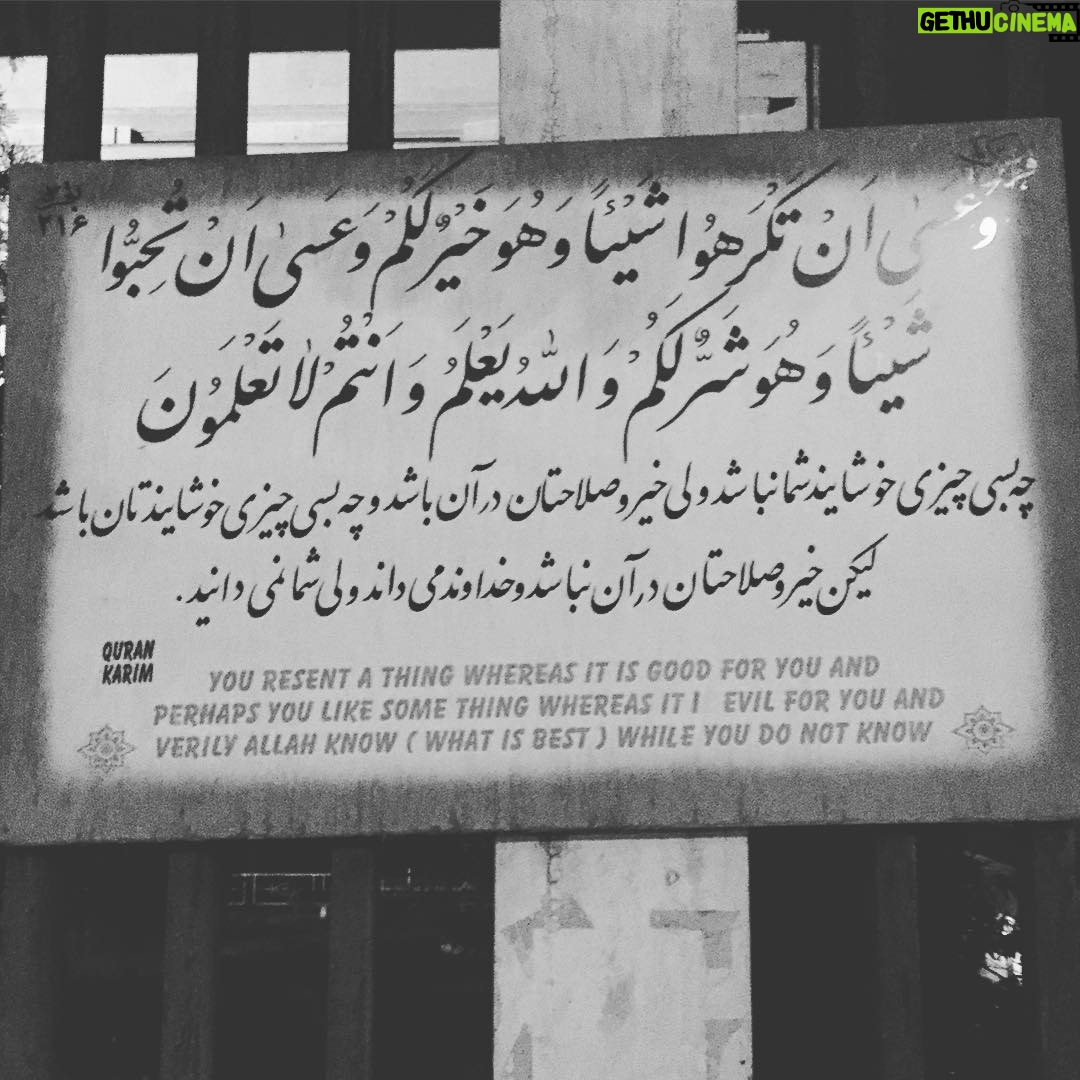 GETHUCINEMA
وَعَسىٰ اَنْ تَكْرَهُوا شَيْئاً وَهُوَ خَيْرٌ لَكُمْ وَعَسىٰ اَنْ تُحِبُّوا
۲۱۶
شَيْئاً وَهُوَ شَرٌّ لَكُمْ وَاللهُ يَعْلَمُ وَاَنْتُمْ لاٰتَعْلَمُونَ
چه بسی چیزی خوشایند شما نباشد ولی خیر و صلاحتان در آن باشد و چه بسی چیزی خوشایندتان باشد
لیکن خیر و صلاحتان در آن نباشد و خداوند می داند ولی شما نمی دانید.
QURAN
KARIM
YOU RESENT A THING WHEREAS IT IS GOOD FOR YOU AND
PERHAPS YOU LIKE SOME THING WHEREAS IT I EVIL FOR YOU AND
VERILY ALLAH KNOW ( WHAT IS BEST ) WHILE YOU DO NOT KNOW